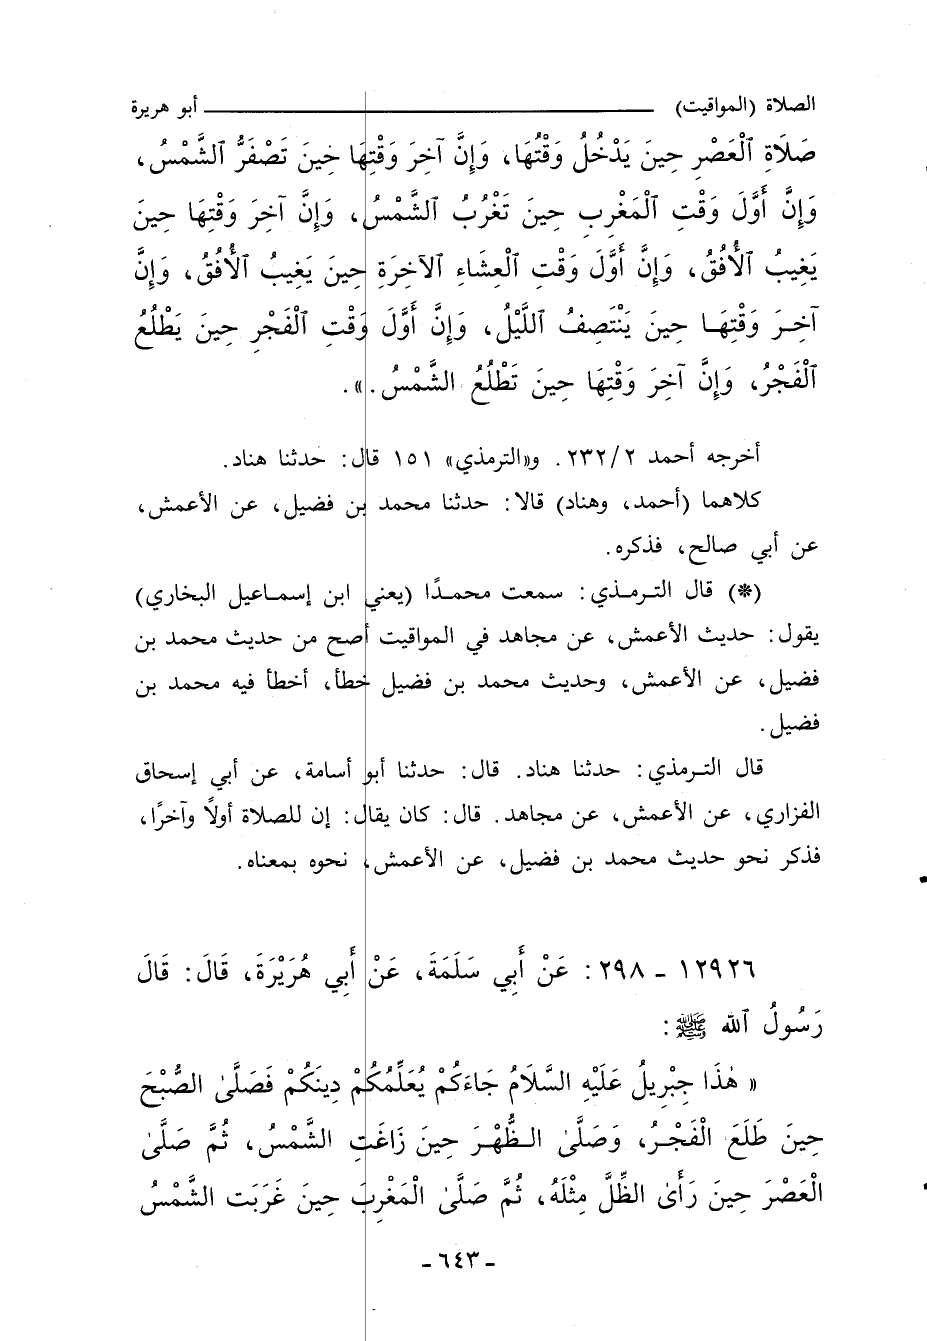 الصلاة (المواقيت) أبو هريرة
صَلَاةِ ٱلْعَصْرِ حِينَ يَدْخُلُ وَقْتُهَا، وَإِنَّ آخِرَ وَقْتِهَا حِينَ تَصْفَرُّ ٱلشَّمْسُ،
وَإِنَّ أَوَّلَ وَقْتِ ٱلْمَغْرِبِ حِينَ تَغْرُبُ ٱلشَّمْسُ، وَإِنَّ آخِرَ وَقْتِهَا حِينَ
يَغِيبُ ٱلْأُفُقُ، وَإِنَّ أَوَّلَ وَقْتِ ٱلْعِشَاءِ ٱلْآخِرَةِ حِينَ يَغِيبُ ٱلْأُفُقُ، وَإِنَّ
آخِرَ وَقْتِهَا حِينَ يَنْتَصِفُ ٱللَّيْلُ، وَإِنَّ أَوَّلَ وَقْتِ ٱلْفَجْرِ حِينَ يَطْلُعُ
ٱلْفَجْرُ، وَإِنَّ آخِرَ وَقْتِهَا حِينَ تَطْلُعُ الشَّمْسُ.».
أخرجه أحمد ٢/٢٣٢. و«الترمذي» ١٥١ قال: حدثنا هناد.
كلاهما (أحمد، وهناد) قالا: حدثنا محمد بن فضيل، عن الأعمش،
عن أبي صالح، فذكره.
(*) قال الترمذي: سمعت محمدًا (يعني ابن إسماعيل البخاري)
يقول: حديث الأعمش، عن مجاهد في المواقيت أصح من حديث محمد بن
فضيل، عن الأعمش، وحديث محمد بن فضيل خطأ، أخطأ فيه محمد بن
فضيل.
قال الترمذي: حدثنا هناد. قال: حدثنا أبو أسامة، عن أبي إسحاق
الفزاري، عن الأعمش، عن مجاهد. قال: كان يقال: إن للصلاة أولاً وآخرًا،
فذكر نحو حديث محمد بن فضيل، عن الأعمش، نحوه بمعناه.
١٢٩٢٦ - ٢٩٨: عَنْ أَبِي سَلَمَةَ، عَنْ أَبِي هُرَيْرَةَ، قَالَ: قَالَ
رَسُولُ ٱللَّه ﷺ:
« هٰذَا جِبْرِيلُ عَلَيْهِ السَّلَامُ جَاءَكُمْ يُعَلِّمُكُمْ دِينَكُمْ فَصَلَّىٰ الصُّبْحَ
حِينَ طَلَعَ الْفَجْرُ، وَصَلَّىٰ الظُّهْرَ حِينَ زَاغَتِ الشَّمْسُ، ثُمَّ صَلَّىٰ
الْعَصْرَ حِينَ رَأَىٰ الظِّلَّ مِثْلَهُ، ثُمَّ صَلَّىٰ الْمَغْرِبَ حِينَ غَرَبَت الشَّمْسُ
- ٦٤٣ -